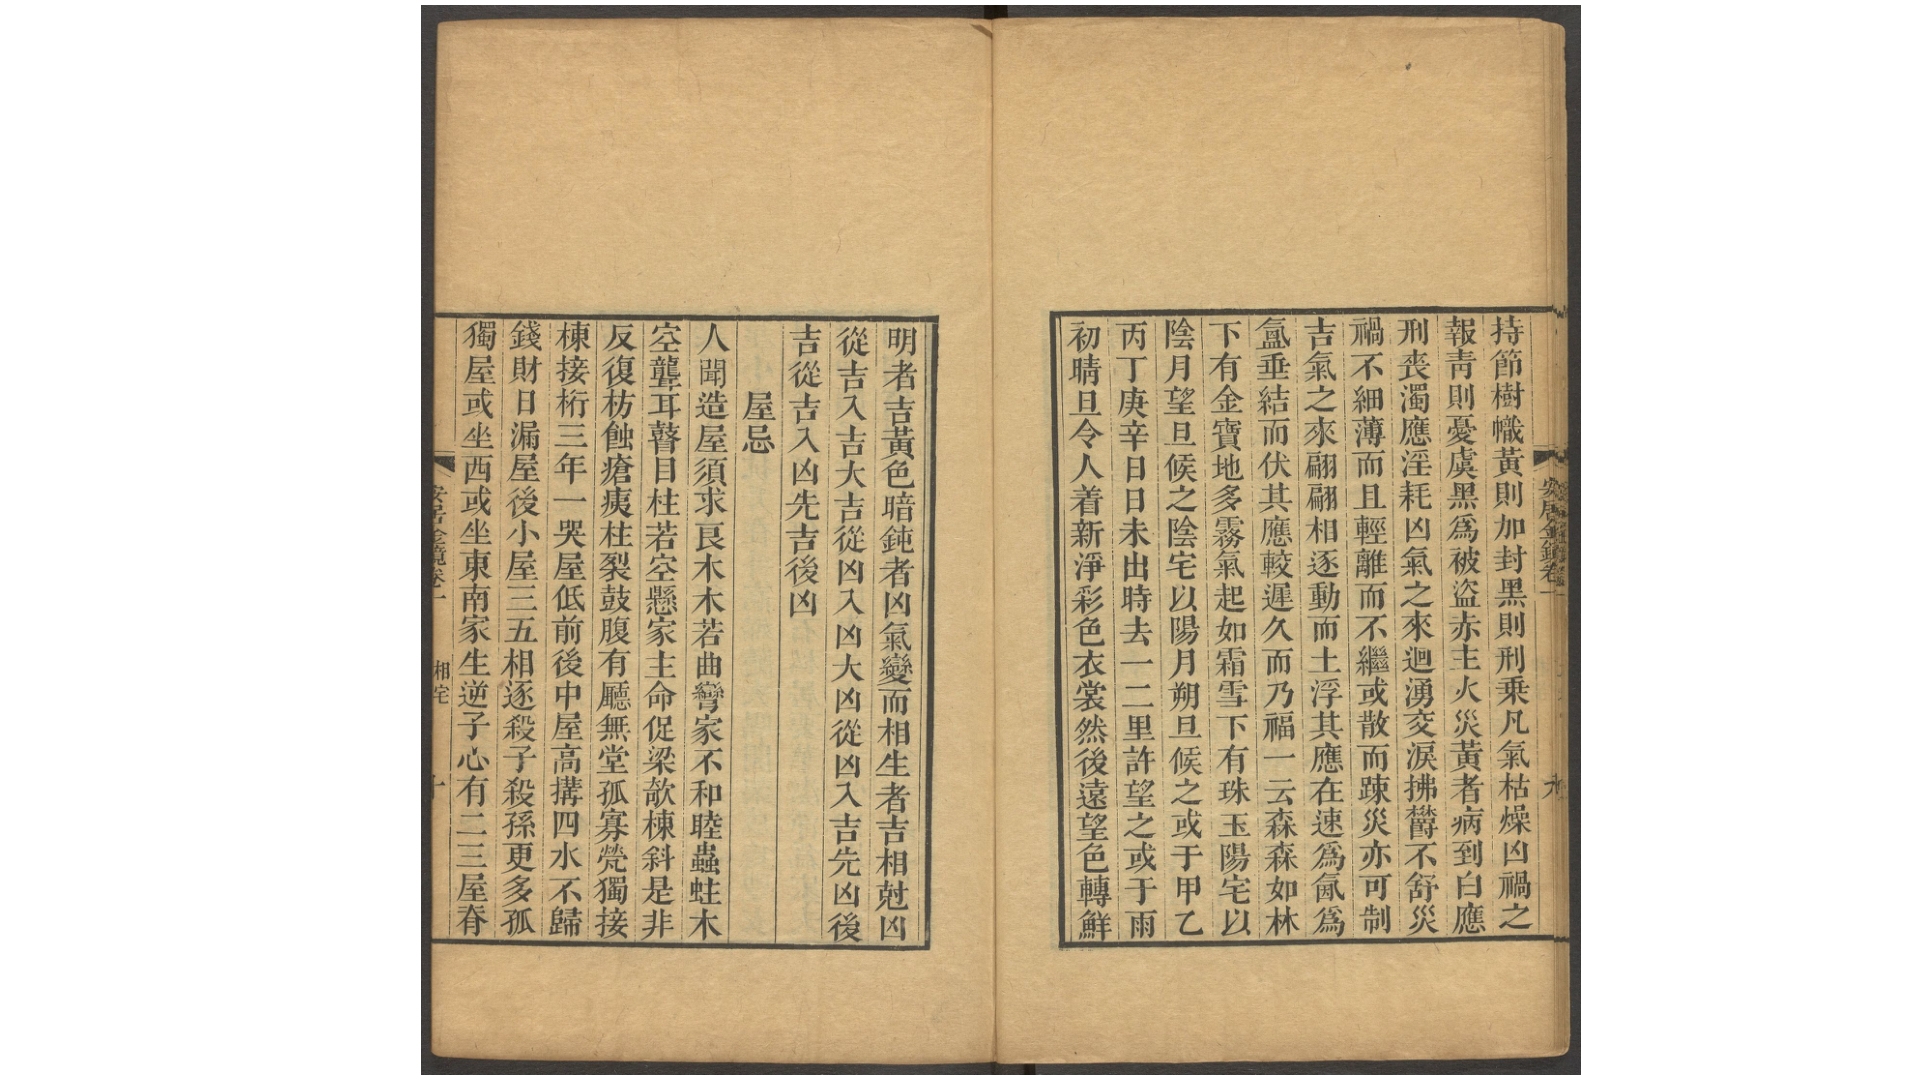 安居金鏡卷一
九
持節樹幟黃則加封黑則刑乘凡氣枯燥凶禍之
報靑則憂虞黑爲被盜赤主火災黃者病到白應
刑喪濁應淫耗凶氣之來迴湧交淚拂欝不舒災
禍不細薄而且輕離而不繼或散而踈災亦可制
吉氣之來翩翩相逐動而土浮其應在速爲氤爲
氳垂結而伏其應較遲久而乃福一云森森如林
下有金寶地多霧氣起如霜雪下有珠玉陽宅以
陰月望旦候之陰宅以陽月朔旦候之或于甲乙
丙丁庚辛日日未出時去一二里許望之或于雨
初晴旦令人着新淨彩色衣裳然後遠望色轉鮮
明者吉黃色暗鈍者凶氣變而相生者吉相尅凶
從吉入吉大吉從凶入凶大凶從凶入吉先凶後
吉從吉入凶先吉後凶
屋忌
人聞造屋須求艮木木若曲彎家不和睦蟲蛀木
空聾耳瞽目柱若空懸家主命促梁欹棟斜是非
反復枋蝕瘡痍柱裂鼓腹有廳無堂孤寡煢獨接
棟接桁三年一哭屋低前後中屋高搆四水不歸
錢財日漏屋後小屋三五相逐殺子殺孫更多孤
獨屋或坐西或坐東南家生逆子心有二三屋脊
安居金鏡卷一
相宅
十